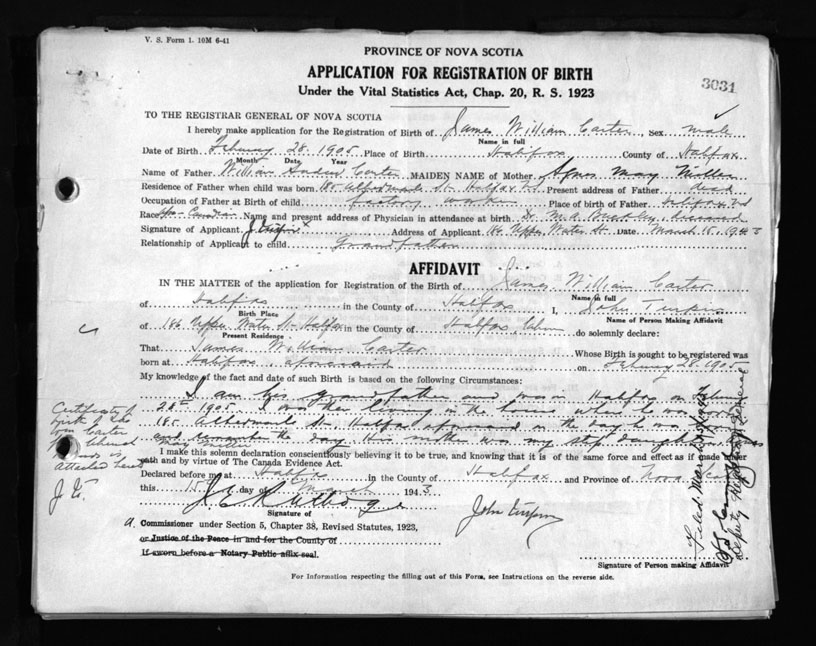 V. S. Form 1. 10M 6-41
PROVINCE OF NOVA SCOTIA
APPLICATION FOR REGISTRATION OF BIRTH
3031
Under the Vital Statistics Act, Chap. 20, R. S. 1923
TO THE REGISTRAR GENERAL OF NOVA SCOTIA
I hereby make application for the Registration of Birth of James William Carter, Sex male
Name in full
Date of Birth February 28 1905 Place of Birth Halifax County of Halifax
Month Date Year
Name of Father William Carter MAIDEN NAME of Mother Agnes May Miller
Residence of Father when child was born 185 Albermarle St. Halifax Present address of Father dead
Occupation of Father at Birth of child factory worker Place of Birth of father Halifax
Race Name and present address of Physician in attendance at birth Dr. M. A. deceased
Signature of Applicant J Address of Applicant 166 Upper Water St. Date March 15, 1943
Relationship of Applicant to child Grandfather
AFFIDAVIT
IN THE MATTER of the application for Registration of the Birth of James William Carter
Name in full
of Halifax in the County of Halifax I, John
Birth Place Name of Person Making Affidavit
of 166 Upper Water St. Halifax in the County of Halifax do solemnly declare:
Present Residence
That James William Carter Whose Birth is sought to be registered was
born at Halifax aforesaid on February 28. 1905
My knowledge of the fact and date of such Birth is based on the following Circumstances:
I am his grandfather and was in Halifax on February
28th 1905. I was then living in the house where he was born
185 Albermarle St. Halifax aforesaid on the day he was born
and remember the day. His mother was my step daughter Agnes
May Miller
Certificate of
birth of the
Carter
is
attached hereto
J.
I make this solemn declaration conscientiously believing it to be true, and knowing that it is of the same force and effect as if made under
oath and by virtue of The Canada Evidence Act.
Declared before me at Halifax in the County of Halifax and Province of Nova Scotia
this 15 day of March 1943
John
Signature of
a Commissioner under Section 5, Chapter 38, Revised Statutes, 1923,
or Justice of the Peace in and for the County of
If sworn before a Notary Public affix seal.
Signature of Person making Affidavit
Filed March
Deputy Registrar General
For Information respecting the filling out of this Form, see Instructions on the reverse side.